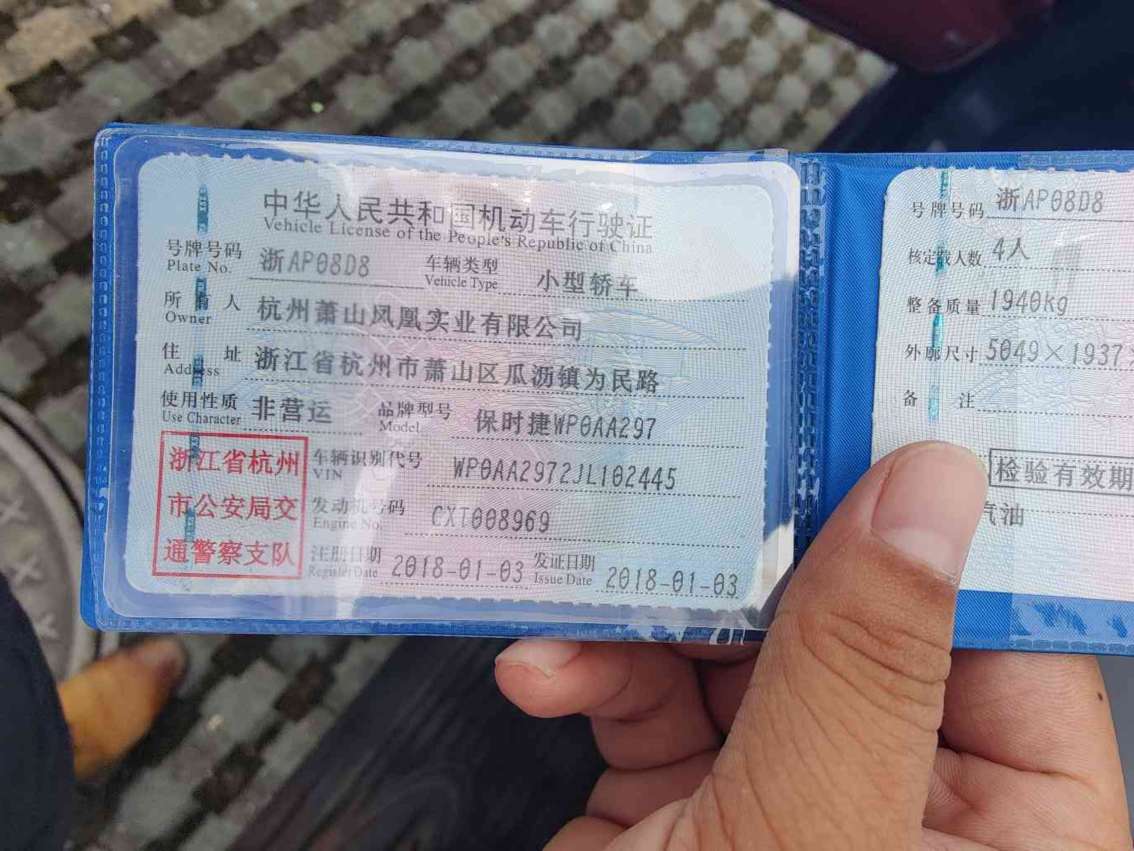 中华人民共和国机动车行驶证
Vehicle License of the People's Republic of China
号牌号码 浙AP08D8 车辆类型 小型轿车
Plate No. Vehicle Type
所有人 杭州萧山凤凰实业有限公司
Owner
住址 浙江省杭州市萧山区瓜沥镇为民路
Address
使用性质 非营运 品牌型号 保时捷WP0AA297
Use Character Model
浙江省杭州
市公安局交
通警察支队
车辆识别代号 WP0AA2972JL102445
VIN
发动机号码 CXT008969
Engine No.
注册日期 2018-01-03 发证日期 2018-01-03
Register Date Issue Date
号牌号码 浙AP08D8
核定载人数 4人
整备质量 1940Kg
外廓尺寸 5049×1937×
备注
检验有效期
汽油